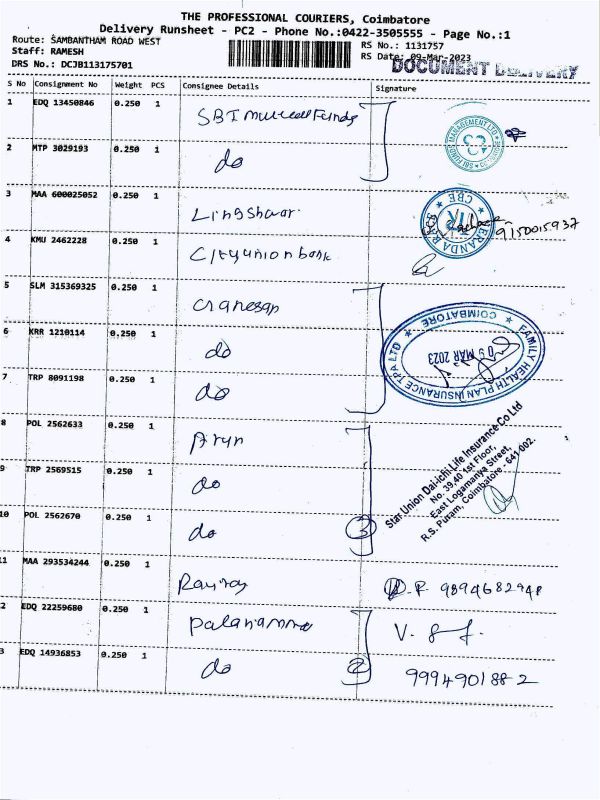 THE PROFESSIONAL COURIERS, Coimbatore
Delivery Runsheet - PC2 - Phone No.:0422-3505555 - Page No.:1
Route: SAMBANTHAM ROAD WEST
RS No.: 1131757
Staff: RAMESH
RS Date: 09-Mar-2023
DRS No.: DCJB113175701
DOCUMENT DELIVERY
S No Consignment No Weight PCS Consignee Details Signature
1 EDQ 13450846 0.250 1 SBI mutual Funds
2 MTP 3029193 0.250 1 do
3 MAA 600025052 0.250 1 Lingshwar
9150015937
4 KMU 2462228 0.250 1 Cityunionbank
5 SLM 315369325 0.250 1 Granesan
6 KRR 1210114 0.250 1 do
FAMILY HEALTH PLAN INSURANCE TPA LTD ★ COIMBATORE ★
09 MAR 2023
7 TRP 8091198 0.250 1 do
8 POL 2562633 0.250 1 Arun
9 TRP 2569515 0.250 1 do
Star Union Dai-ichi Life Insurance Co Ltd
No. 39,40 1st Floor,
East Logamanya Street,
R.S. Puram, Coimbatore - 641 002.
10 POL 2562670 0.250 1 do 3
11 MAA 293534244 0.250 1 Raviraj R 9894682948
2 EDQ 22259680 0.250 1 palaniamma V.
3 EDQ 14936853 0.250 1 do 2 9994901882